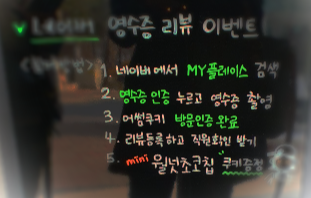 ✓ 네이버 영수증 리뷰 이벤트!
1. 네이버에서 MY플레이스 검색
2. 영수증 인증 누르고 영수증 촬영
3. 어썸쿠키 방문인증 완료
4. 리뷰등록하고 직원확인 받기
5. mini 월넛초코칩 쿠키증정